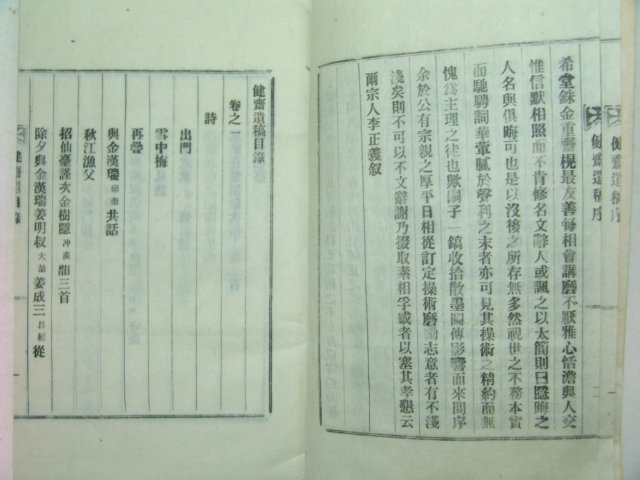 健齋遺稿序
健齋遺稿序
希堂銖金重齋榥最友善每相會講磨不厭雅心恬澹與人交
惟信默相照而不肯修名文辭人或諷之以太簡則曰隱晦之
人名與俱晦可也是以沒後之所存無多然視世之不務本實
而馳騁詞華葷膩於聲利之末者亦可見其操術之精約而無
愧爲主理之徒也歟嗣子一鎬收拾散墨圖傳影響而來問序
余於公有宗親之厚平日相從訂定操術磨 志意者有不淺
淺矣則不可以不文辭謝乃掇取素相孚或者以塞其孝懇云
爾宗人李正義叙
健齋遺稿目錄
卷之一
詩
出門
雪中梅
再疊
與金漢瑞 共話
秋江漁父
招仙臺謹次金樹隱冲奭 韻三首
除夕與金漢瑞姜明叔大 姜成三呂桓從
健齋遺稿目錄